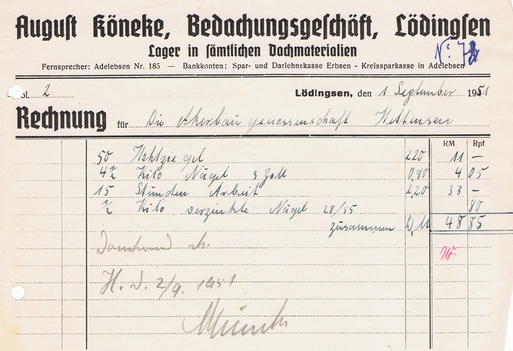 August Köneke, Bedachungsgeschäft, Lödingsen
Lager in sämtlichen Dachmaterialien
Fernsprecher: Adelebsen Nr. 185 — Bankkonten: Spar- und Darlehnskasse Erbsen - Kreissparkasse in Adelebsen
2 Lödingsen, den 1 September 1951
Rechnung für Die Ackerbaugenossenschaft Hettensen
RM Rpf
50 0,20 11 —
4½ Kilo Nägel 3 Zoll 0,90 4 05
15 Stunden Arbeit 2,20 33 —
½ Kilo verzinkte Nägel 28/55 80
zusammen D,M 48 85
H. d. 2/9. 1951